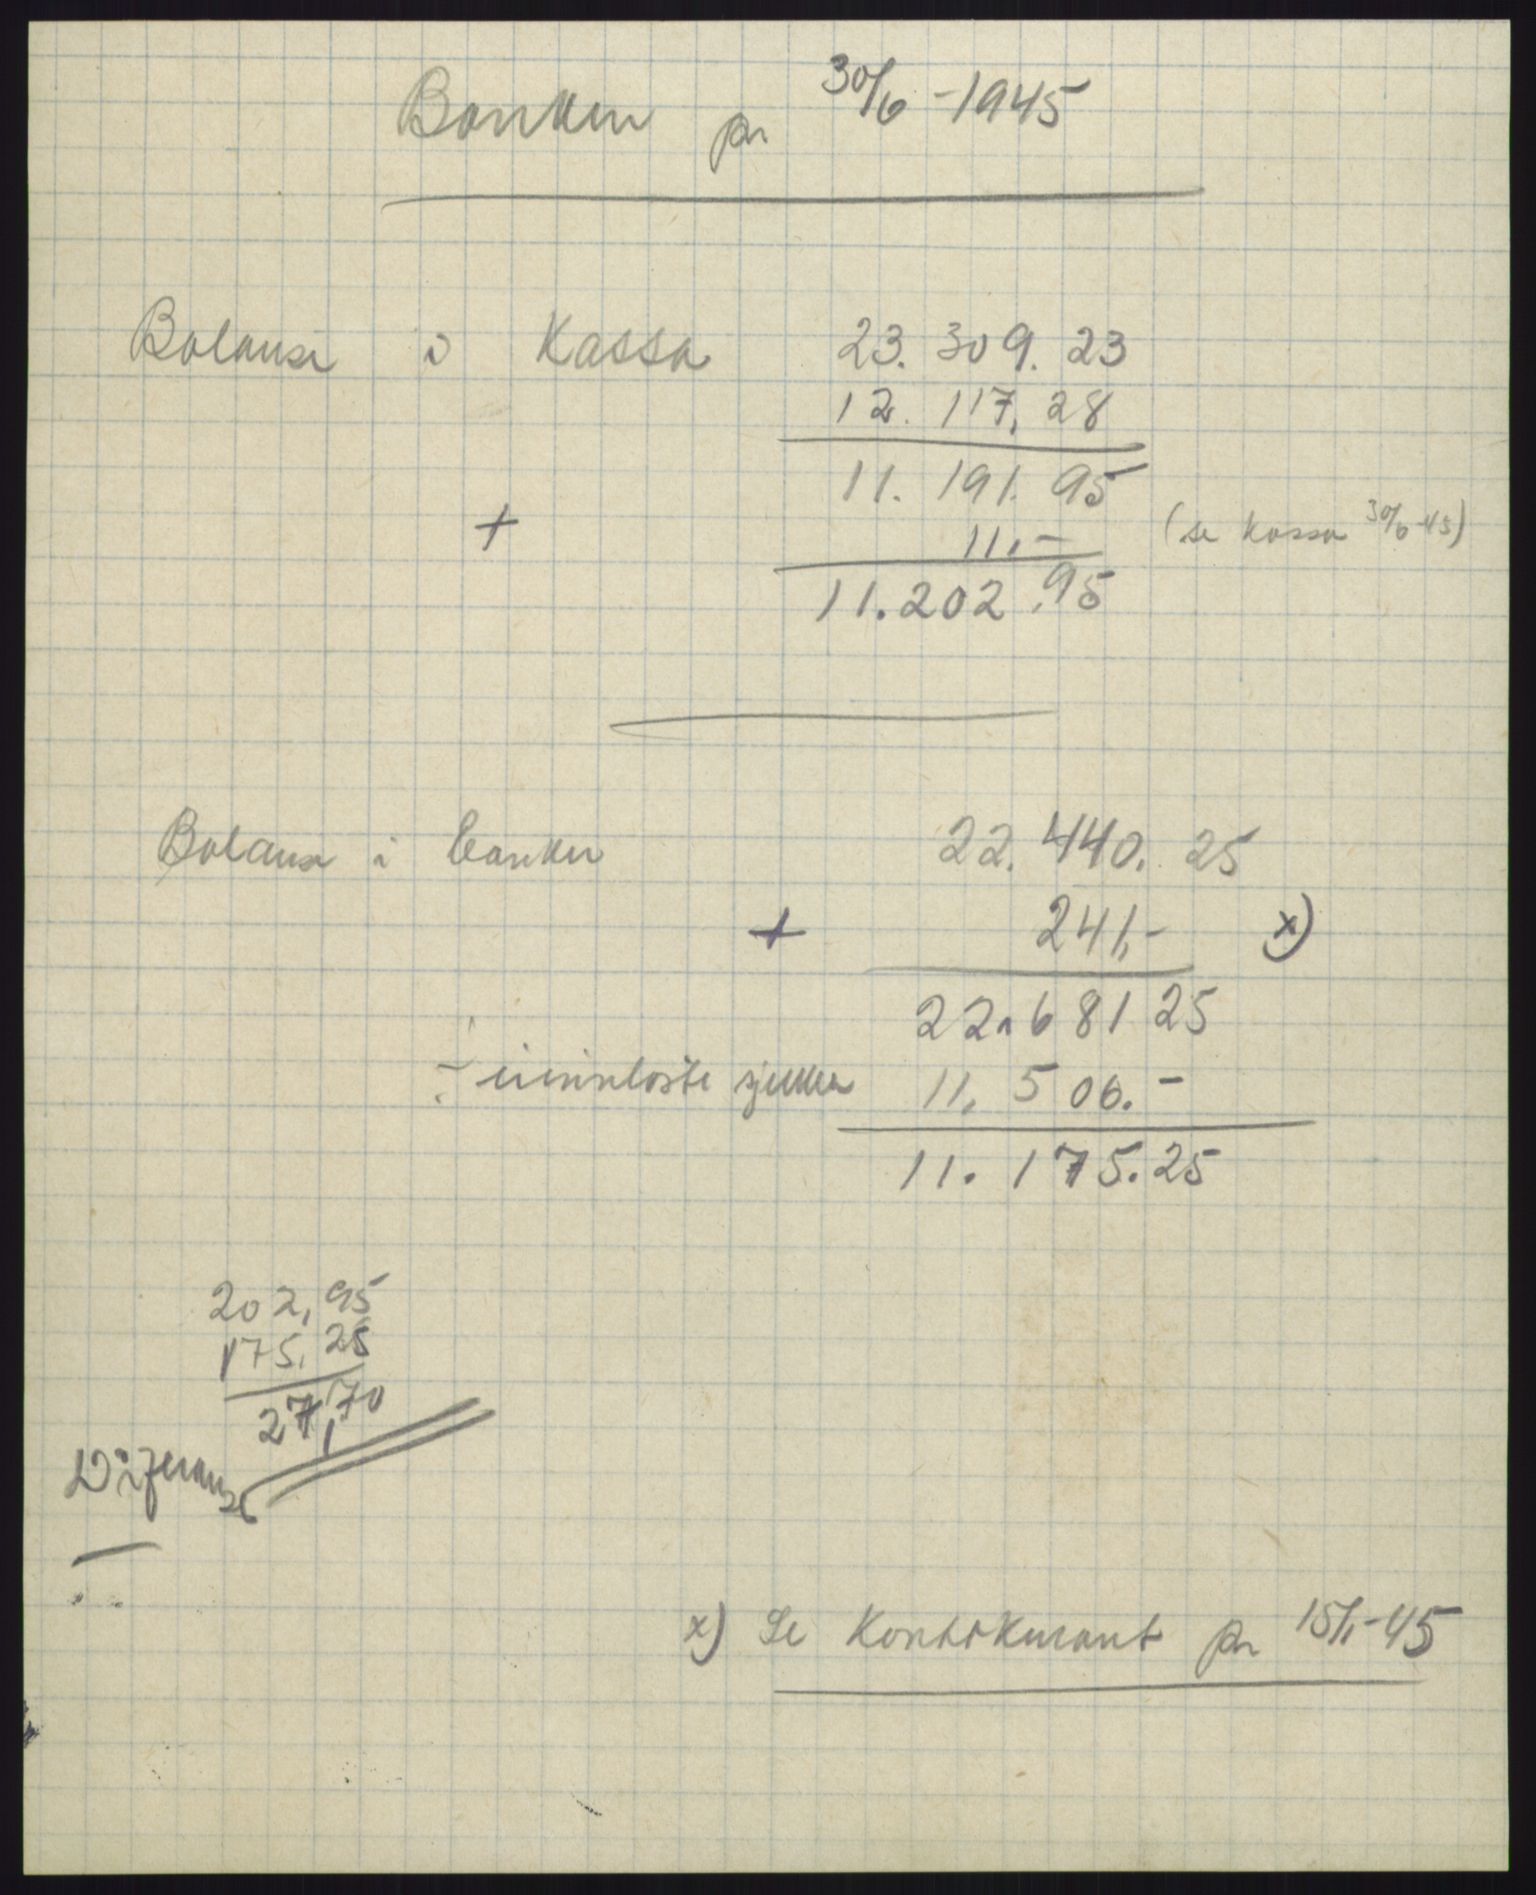 Banken pr 30/6 - 1945
Balanse i Kassa 23.309.23
12.117,28
11.191.95
+ 11,- (se kassa 30/6-45)
11.202,95
Balanse i banken 22.440.25
+ 241,- x)
22.681 25
÷ uinnløste sjekker 11.506.-
11.175.25
202,95
175,25
27,70
Diferanse
x) Se Kontokurant pr 15/1-45